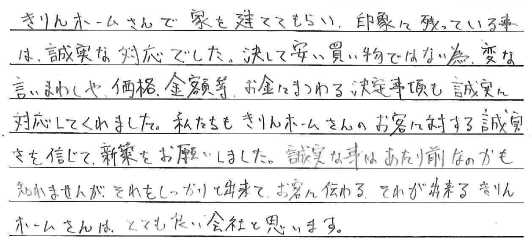 きりんホームさんで家を建ててもらい、印象に残っている事
は、誠実な対応でした。決して安い買い物ではない為、変な
言いまわしや、価格、金額等、お金にまつわる決定事項も誠実に
対応してくれました。私たちもきりんホームさんのお客に対する誠実
さを信じて、新築をお願いしました。誠実な事はあたり前なのかも
知れませんが、それをしっかりと出来て、お客に伝わる、それが出来るきりん
ホームさんは、とても良い会社と思います。